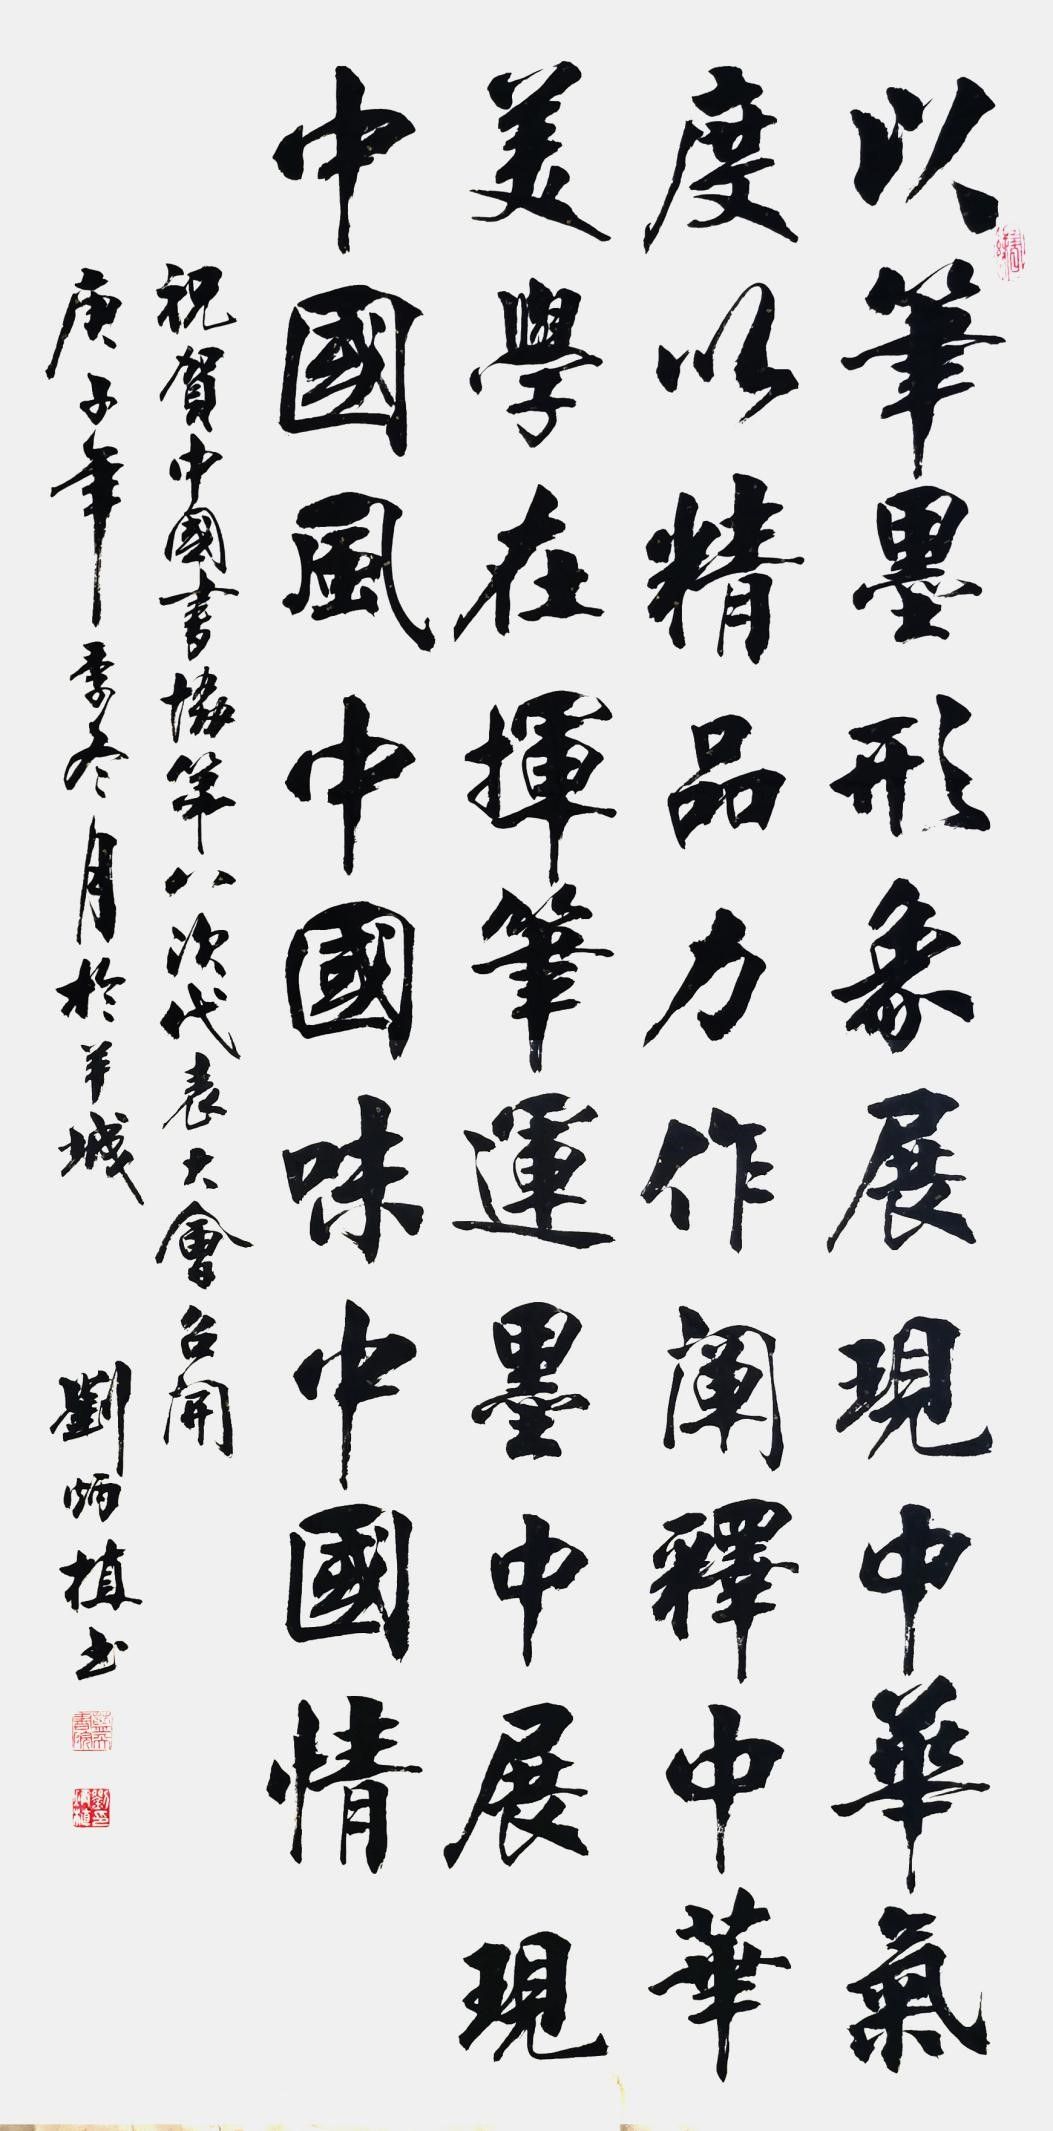 以筆墨形象展現中華氣
度以精品力作阐釋中華
美學在揮筆運墨中展現
中國風中國味中國情
祝賀中國書協第八次代表大會召開
庚子年季冬月於羊城 劉炳植书